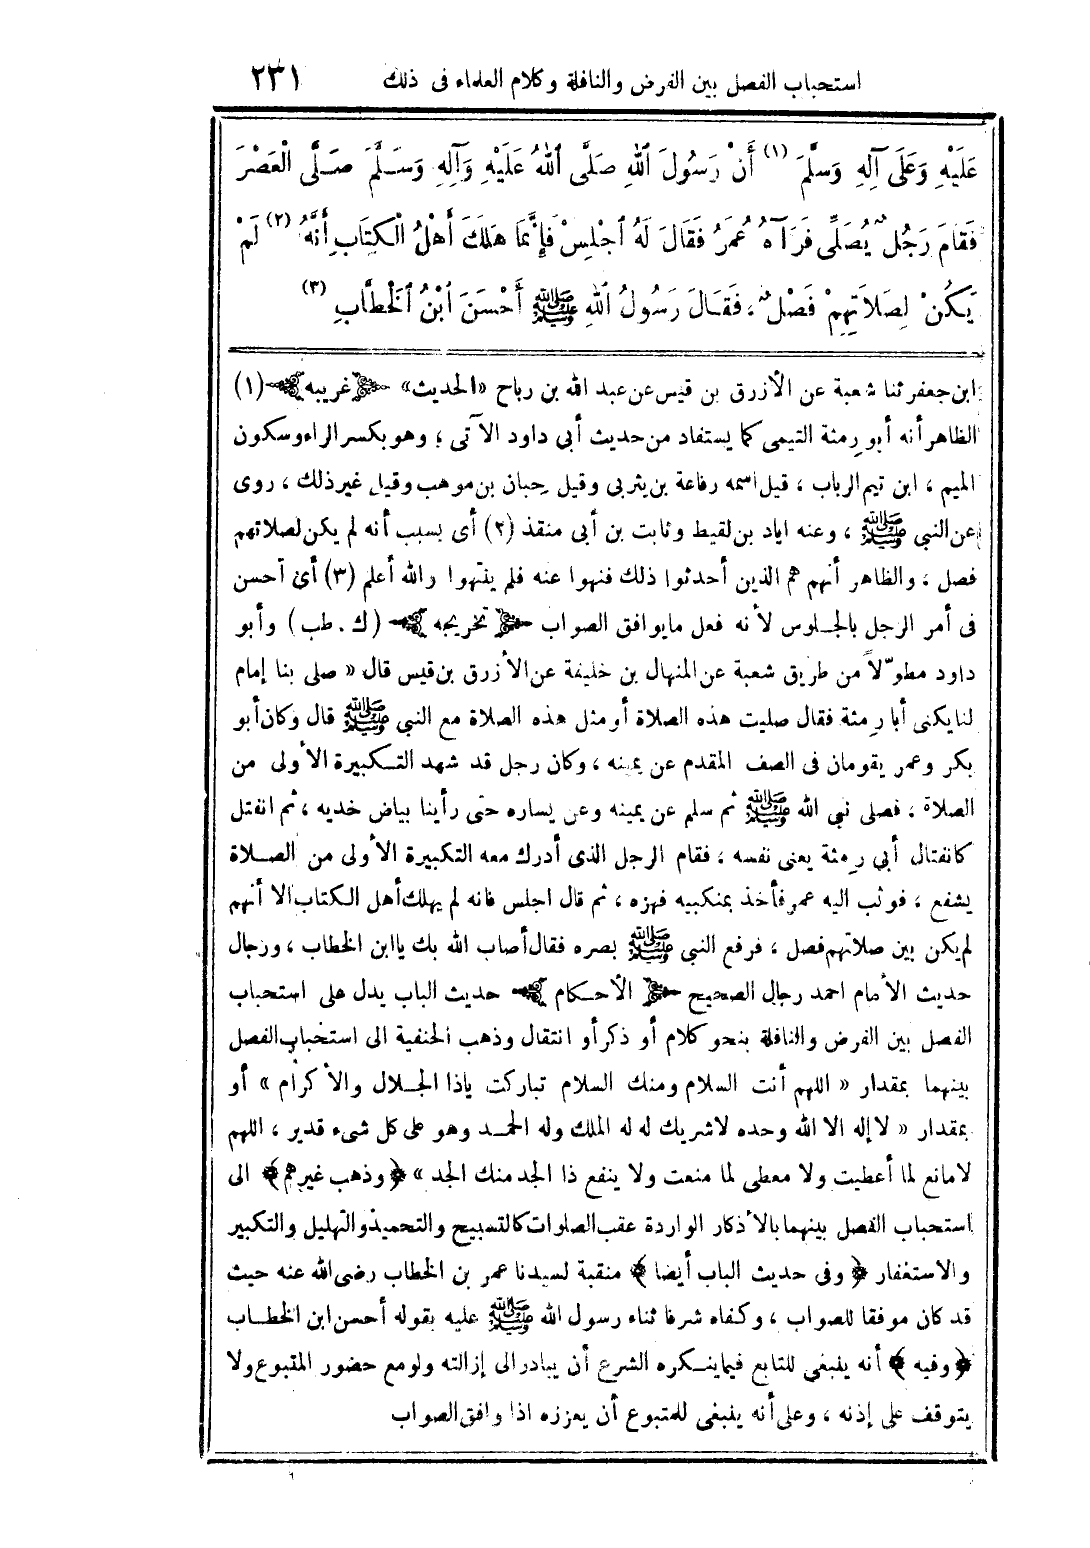 استحباب الفصل بين الفرض والنافلة وكلام العلماء فى ذلك ٢٣١
عَلَيْهِ وَعَلَى آلِهِ وَسَلَّمَ (١) أَنَّ رَسُولَ اللهِ صَلَّى اللهُ عَلَيْهِ وَآلِهِ وَسَلَّمَ صَلَّى الْعَصْرَ
فَقَامَ رَجُلٌ يُصَلِّى فَرَآهُ عُمَرُ فَقَالَ لَهُ اجْلِسْ فَإِنَّمَا هَلَكَ أَهْلُ الْكِتَابِ أَنَّهُ (٢) لَمْ
يَكُنْ لِصَلَاتِهِمْ فَصْلٌ، فَقَالَ رَسُولُ اللهِ ﷺ أَحْسَنَ ابْنُ الْخَطَّابِ (٣)
ابن جعفر ثنا شعبة عن الأزرق بن قيس عن عبد الله بن رباح «الحديث» ﴿غريبه﴾ (١)
الظاهر أنه أبو رمثة التيمى كما يستفاد من حديث أبى داود الآتى ؛ وهو بكسر الراء وسكون
الميم ، ابن تيم الرباب ، قيل اسمه رفاعة بن يثربى وقيل حبان بن موهب وقيل غير ذلك ، روى
عن النبي ﷺ ، وعنه اياد بن لقيط وثابت بن أبى منقذ (٢) أى بسبب أنه لم يكن لصلاتهم
فصل ، والظاهر أنهم هم الذين أحدثوا ذلك فنهوا عنه فلم ينتهوا والله أعلم (٣) أى أحسن
فى أمر الرجل بالجلوس لأنه فعل مايوافق الصواب ﴿تخريجه﴾ (ك . طب) وأبو
داود مطوّلاً من طريق شعبة عن المنهال بن خليفة عن الأزرق بن قيس قال « صلى بنا إمام
لنا يكنى أبا رمثة فقال صليت هذه الصلاة أو مثل هذه الصلاة مع النبي ﷺ قال وكان أبو
بكر وعمر يقومان فى الصف المقدم عن يمينه ، وكان رجل قد شهد التكبيرة الأولى من
الصلاة ، فصلى نبي الله ﷺ ثم سلم عن يمينه وعن يساره حتى رأينا بياض خديه ، ثم انفتل
كانفتال أبي رمثة يعنى نفسه ، فقام الرجل الذى أدرك معه التكبيرة الأولى من الصلاة
يشفع ، فوثب اليه عمر فأخذ بمنكبيه فهزه ، ثم قال اجلس فانه لم يهلك أهل الكتاب الا أنهم
لم يكن بين صلاتهم فصل ، فرفع النبي ﷺ بصره فقال أصاب الله بك يا ابن الخطاب ، ورجال
حديث الأمام احمد رجال الصحيح ﴿الأحكام﴾ حديث الباب يدل على استحباب
الفصل بين الفرض والنافلة بنحو كلام أو ذكر أو انتقال وذهب الحنفية الى استحباب الفصل
بينهما بمقدار « اللهم أنت السلام ومنك السلام تباركت ياذا الجلال والأكرام » أو
بمقدار « لا إله الا الله وحده لاشريك له له الملك وله الحمد وهو على كل شىء قدير ، اللهم
لامانع لما أعطيت ولا معطى لما منعت ولا ينفع ذا الجد منك الجد » ﴿وذهب غيرهم﴾ الى
استحباب الفصل بينهما بالأذكار الواردة عقب الصلوات كالتسبيح والتحميد والتهليل والتكبير
والاستغفار ﴿وفى حديث الباب أيضا﴾ منقبة لسيدنا عمر بن الخطاب رضى الله عنه حيث
قد كان موفقا للصواب ، وكفاه شرفا ثناء رسول الله ﷺ عليه بقوله أحسن ابن الخطاب
﴿وفيه﴾ أنه ينبغي للتابع فيما ينكره الشرع أن يبادر الى إزالته ولو مع حضور المتبوع ولا
يتوقف على إذنه ، وعلى أنه ينبغى للمتبوع أن يعززه اذا وافق الصواب